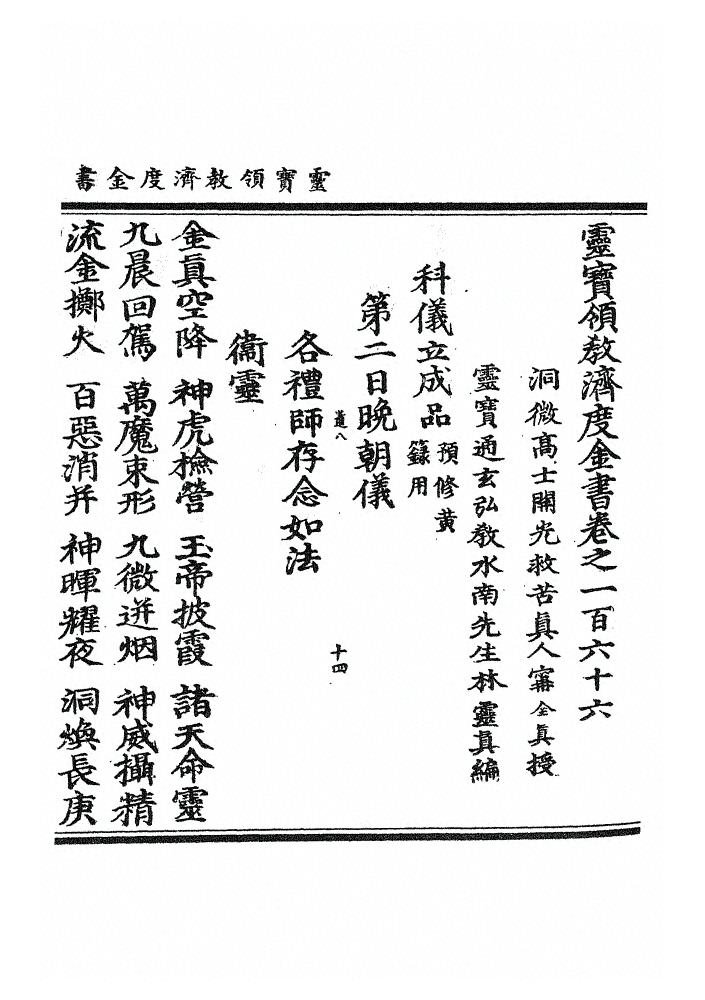 靈寶領教濟度金書
靈寶領教濟度金書卷之一百六十六
洞微高士開光救苦真人甯全真授
靈寶通玄弘教水南先生林靈真編
科儀立成品 預修黄籙用
第二日晚朝儀
道八
十四
各禮師存念如法
衞靈
金真空降 神虎撿營 玉帝披霞 諸天命靈
九晨回駕 萬魔束形 九微迸烟 神威攝精
流金擲火 百惡消并 神暉耀夜 洞煥長庚